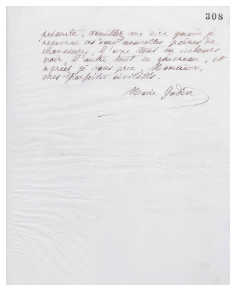 308
présente, veuillez me dire quand je
recevrai ces deux nouvelles paires de
chaussures, l'une tout en velours
noir, l'autre tout en chevreau, et
agréez je vous prie, Monsieur,
mes parfaites civilités.
Marie